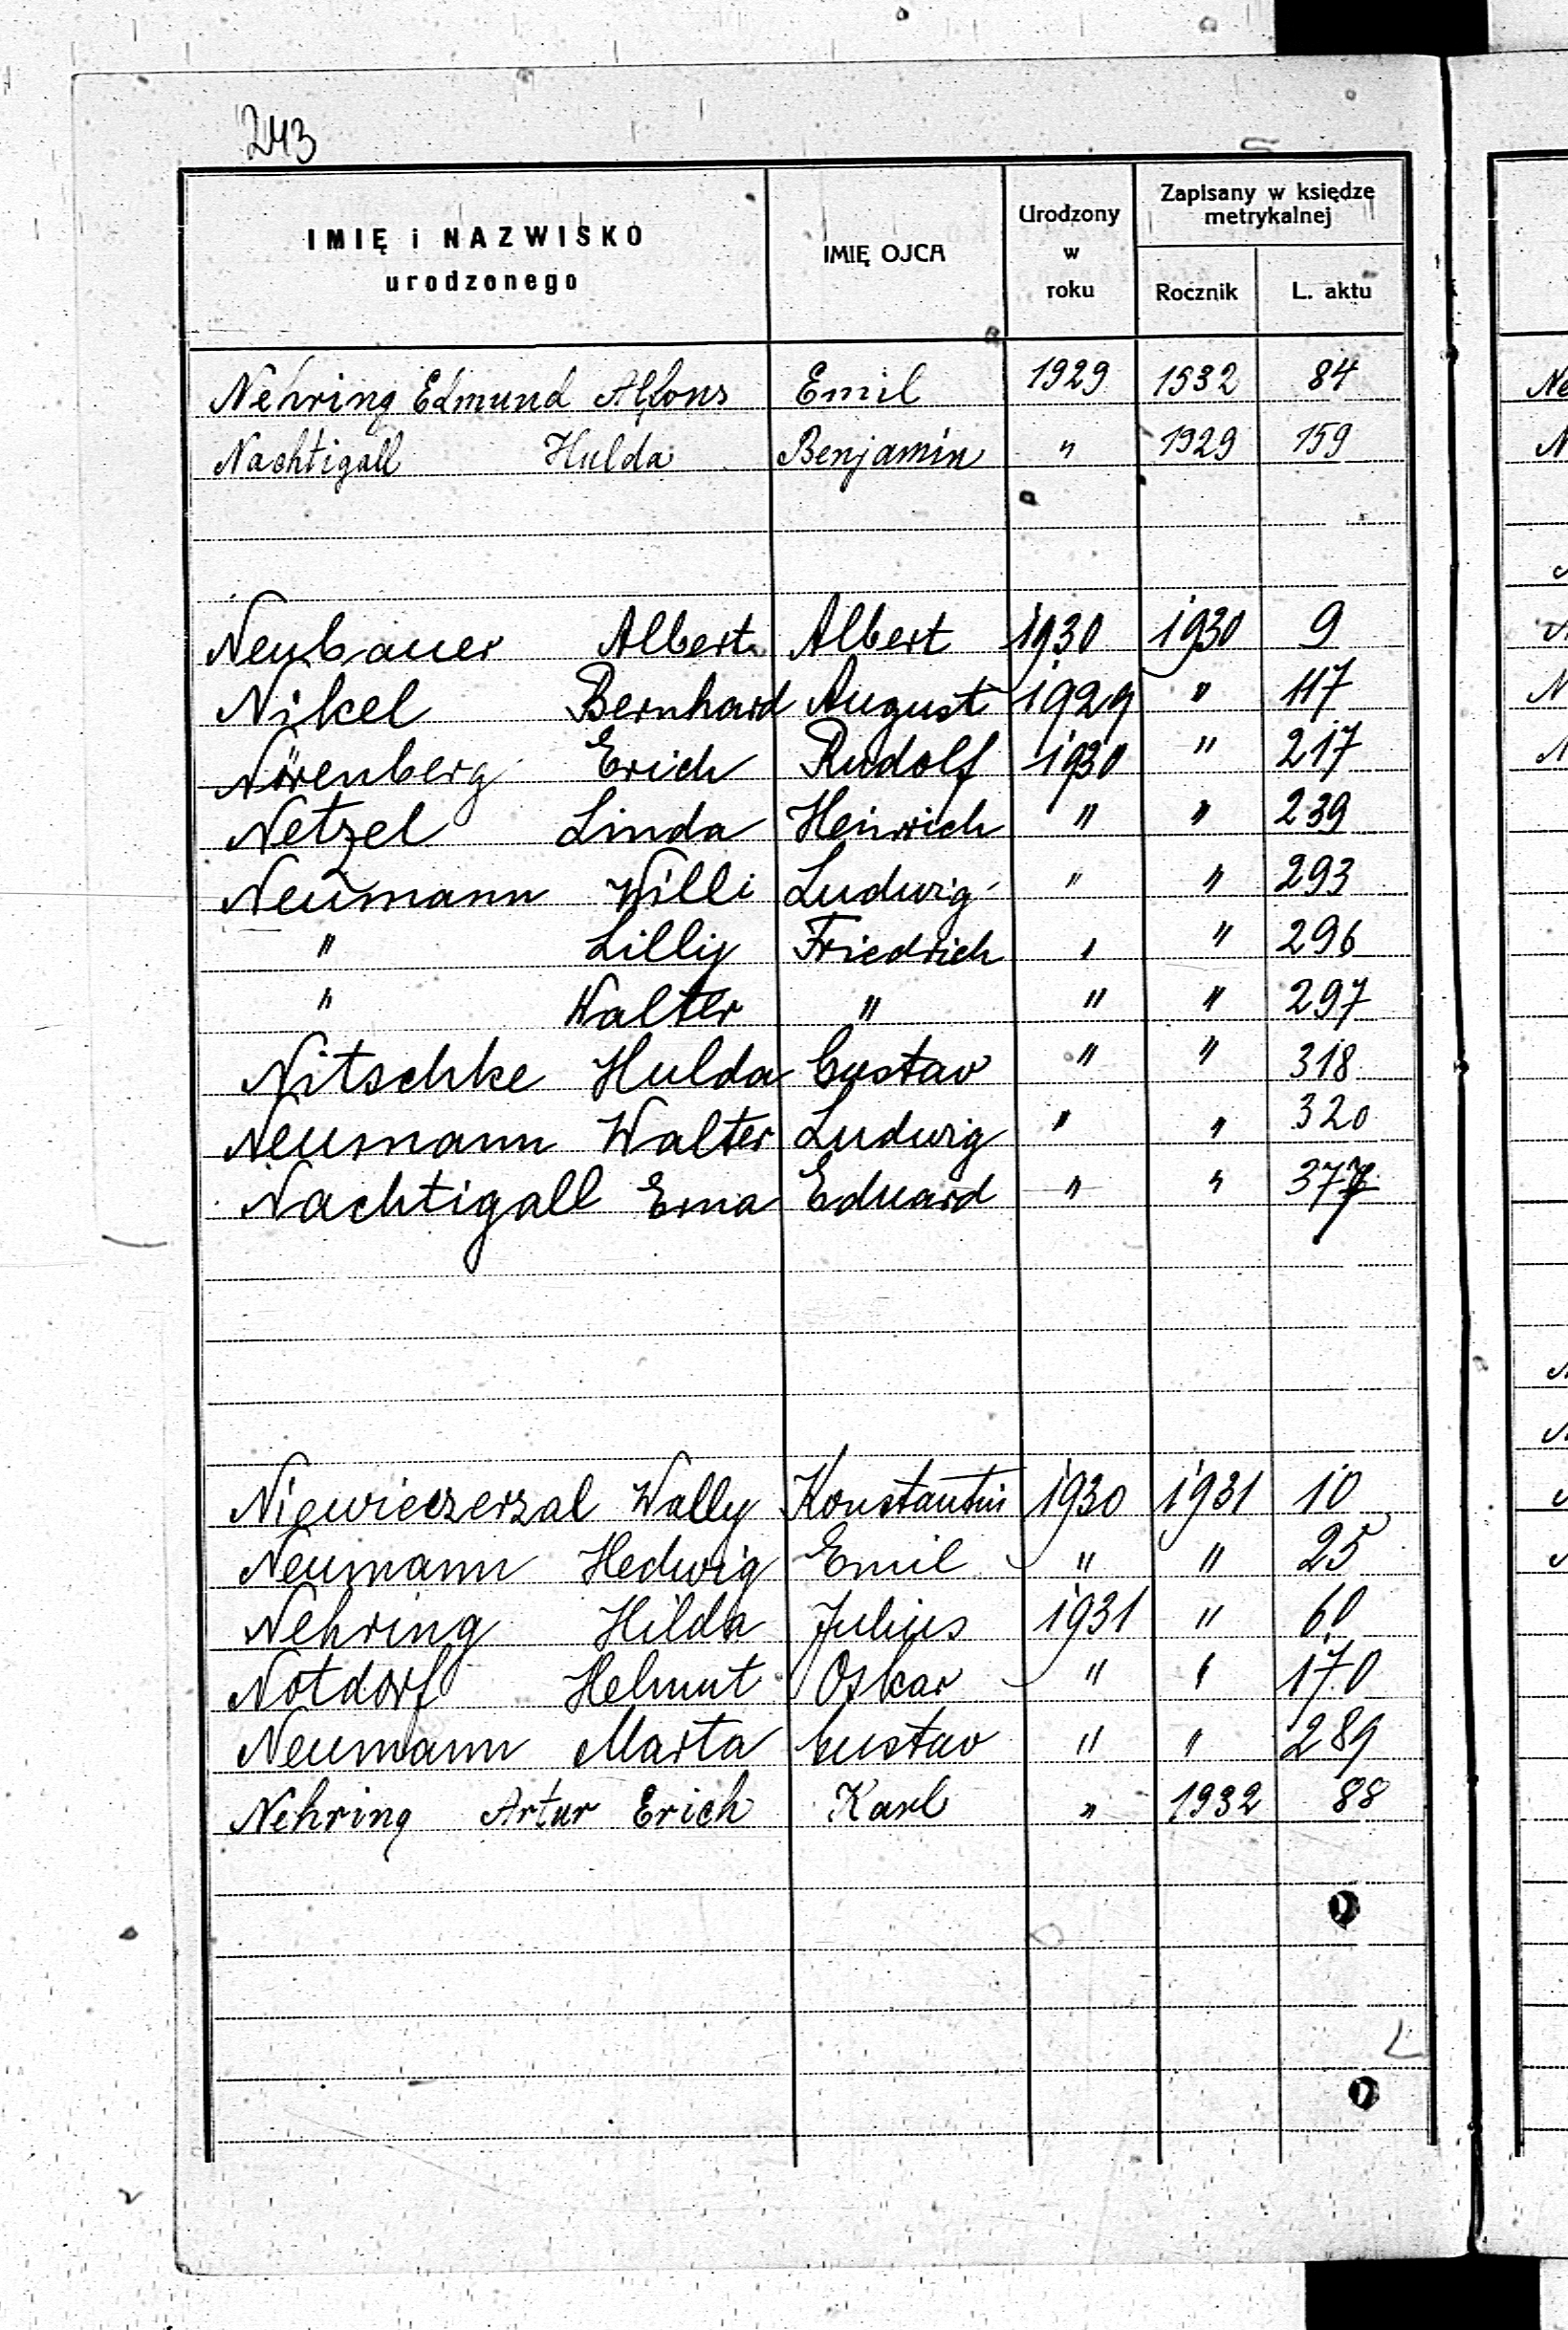 243
IMIĘ i NAZWISKO urodzonego | IMIĘ OJCA | Urodzony w roku | Zapisany w księdze metrykalnej
Rocznik | L. aktu
Nehring Edmund Alfons Emil 1929 1932 84
Nachtigall Hulda Benjamin " 1929 159
Neubauer Albert Albert 1930 1930 9
Nikel Bernhard August 1929 " 117
Nörenberg Erich Rudolf 1930 " 217
Netzel Linda Heinrich " " 239
Neumann Willi Ludwig " " 293
" Lilly Friedrich " " 296
" Walter " " " 297
Nitschke Hulda Gustav " " 318
Neumann Walter Ludwig " " 320
Nachtigall Erna Eduard " " 377
Niewieczerzal Wally Konstantin 1930 1931 10
Neumann Hedwig Emil " " 25
Nehring Hilda Julius 1931 " 60
Notdorf Helmut Oskar " " 170
Neumann Marta Gustav " " 289
Nehring Artur Erich Karl " 1932 88